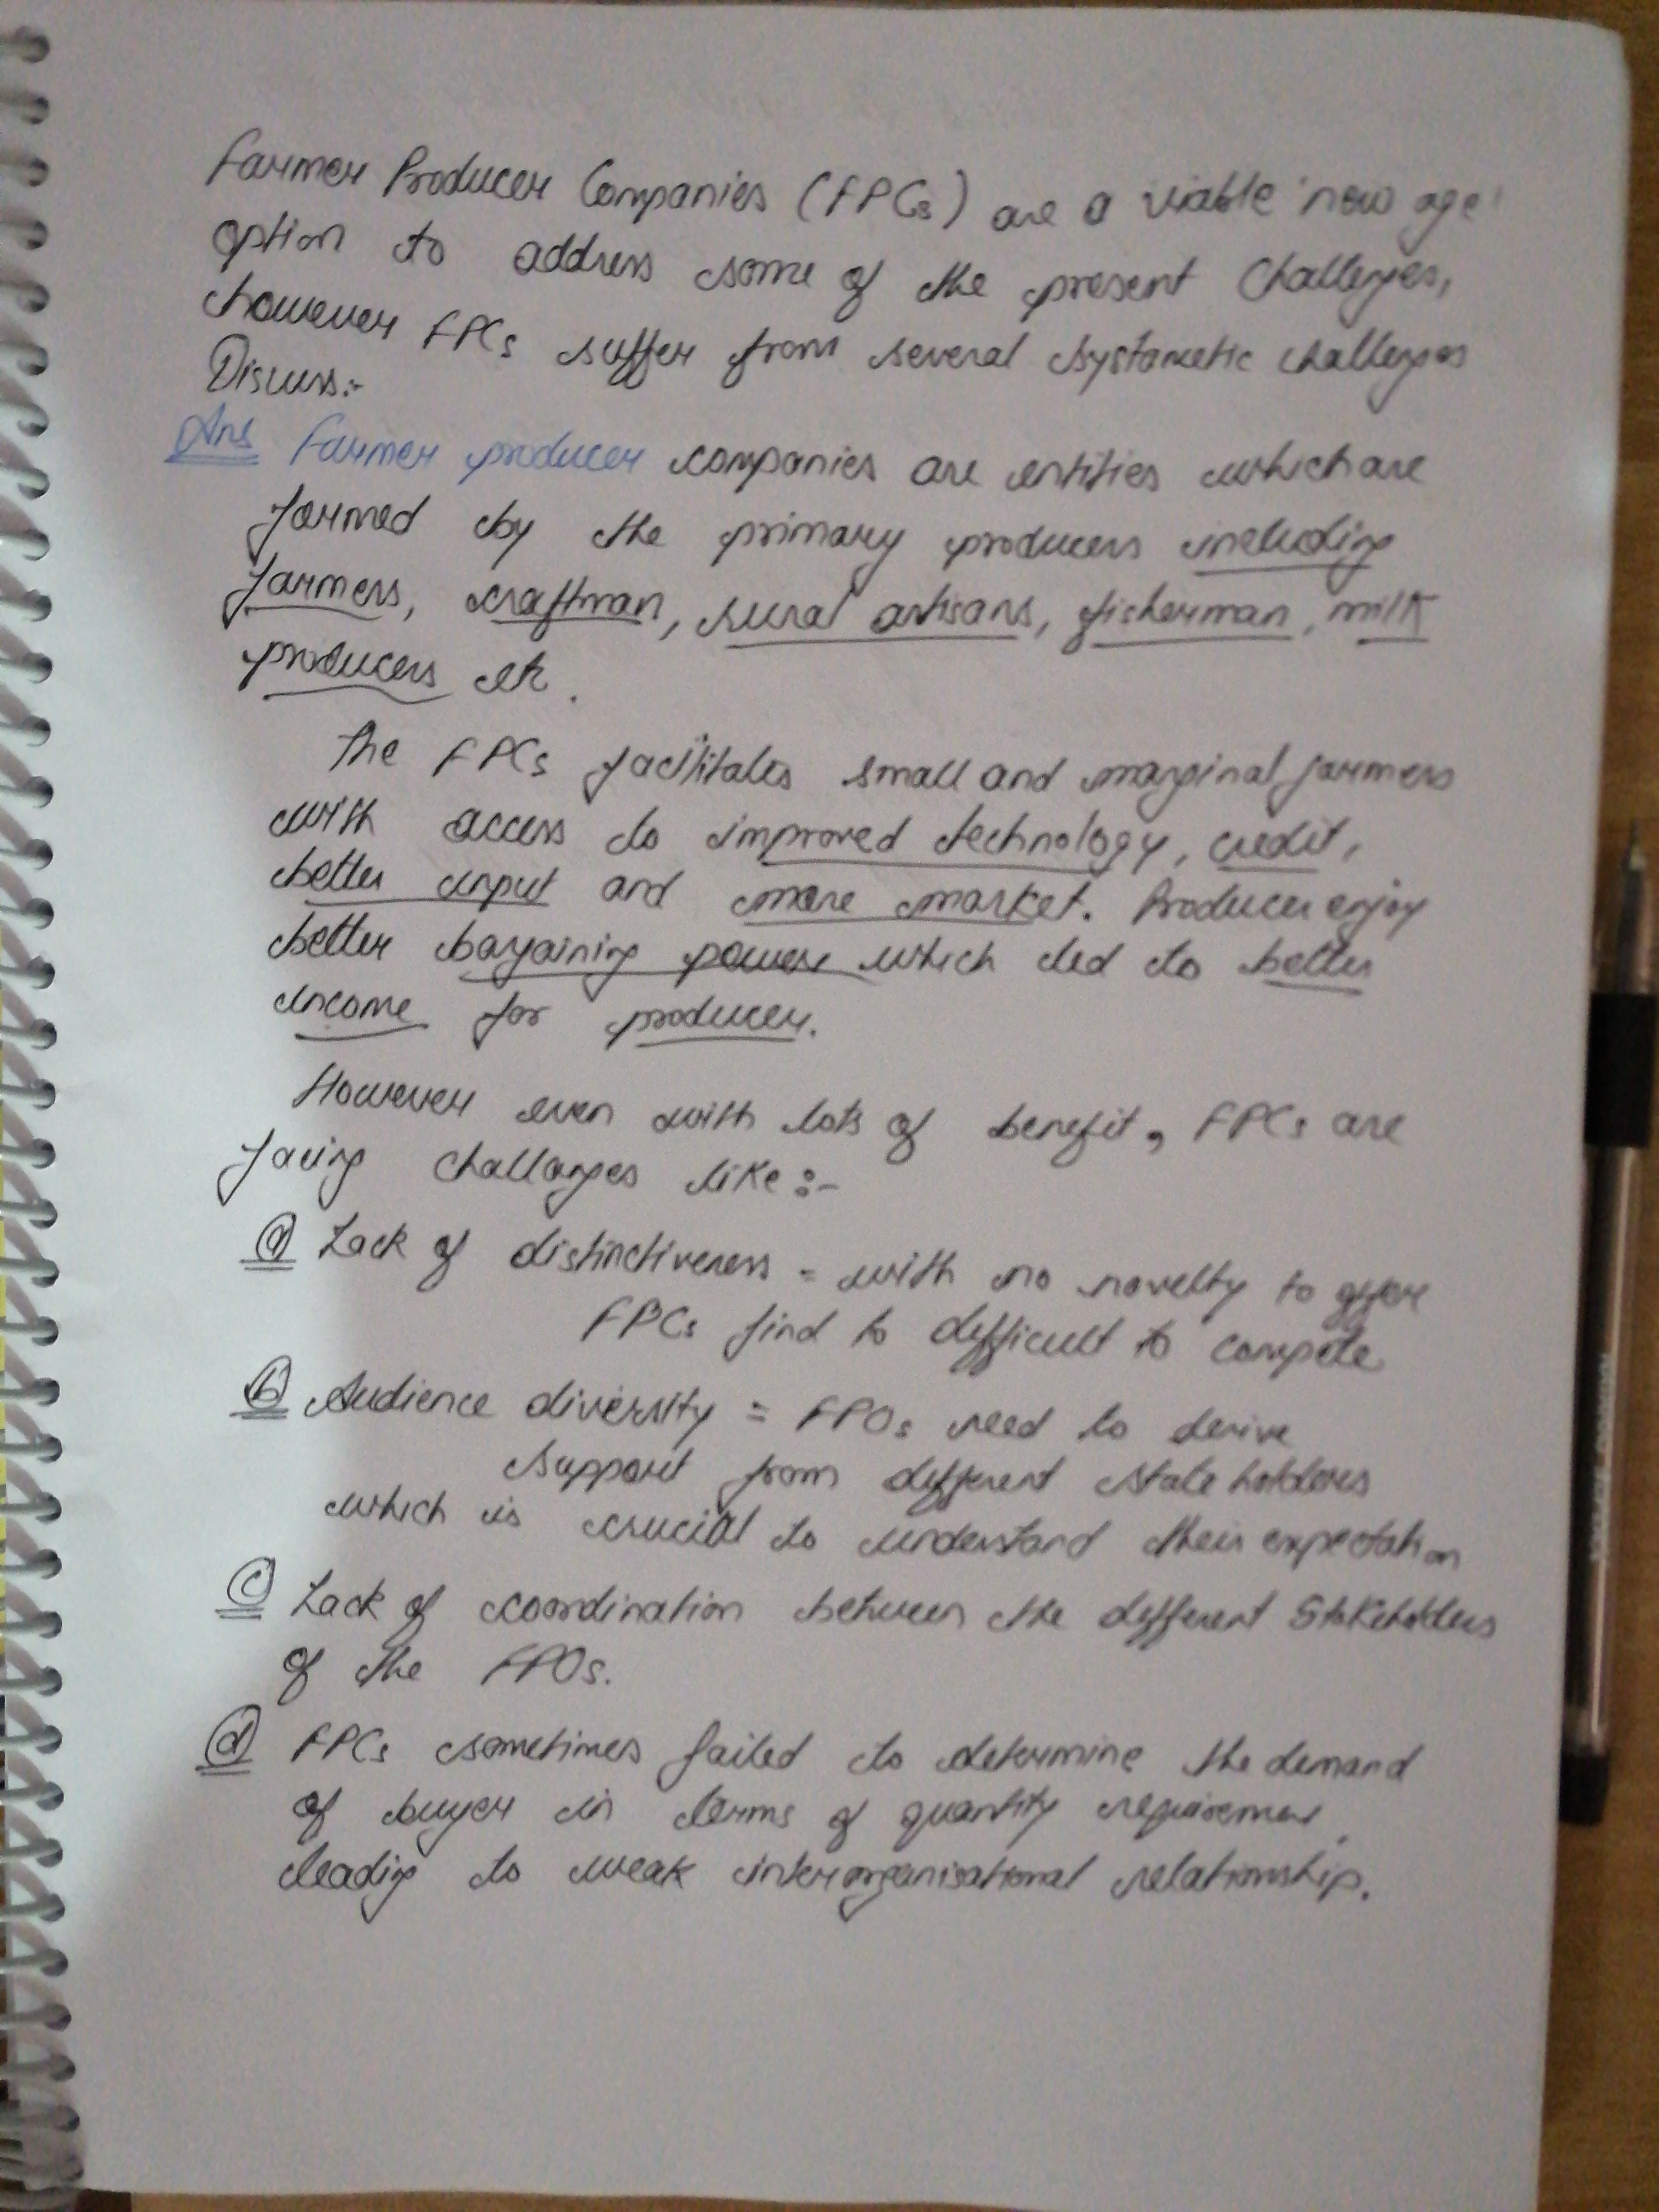 Farmer Producer Companies (FPCs) are a viable 'new age'
option to address some of the present challenges,
however FPCs suffer from several systametic challenges
Discuss:-
Ans Farmer producer companies are entities which are
formed by the primary producers including
farmers, craftman, rural artisans, fisherman, milk
producers etc.
The FPCs facilitates small and marginal farmers
with access to improved technology, credit,
better input and more market. Producer enjoy
better bargaining power which led to better
income for producer.
However even with lots of benefit, FPCs are
facing challanges like :-
(a) Lack of distinctiveness = with no novelty to offer
FPCs find to difficult to compete
(b) Audience diversity = FPOs need to derive
support from different stateholders
which is crucial to understand their expectation
(c) Lack of coordination between the different Stakeholders
of the FPOs.
(d) FPCs sometimes failed to determine the demand
of buyer in terms of quantity requirement,
leading to weak interorganisational relationship.